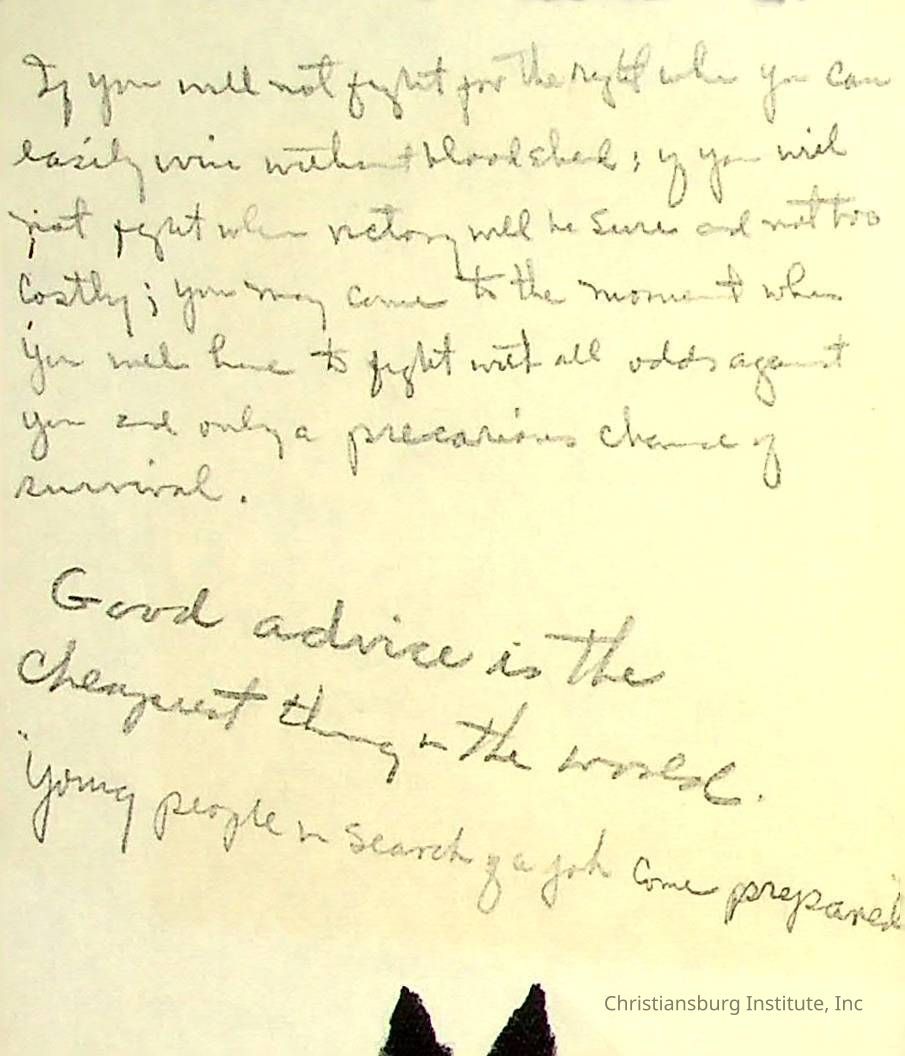 If you will not fight for the right when you can
easily win without bloodshed; if you will
not fight when victory will be sure and not too
costly; you may come to the moment when
you will have to fight with all odds against
you and only a precarious chance of
survival.
Good advice is the
cheapest thing in the world.
"Young people in search of a job come prepared
Christiansburg Institute, Inc